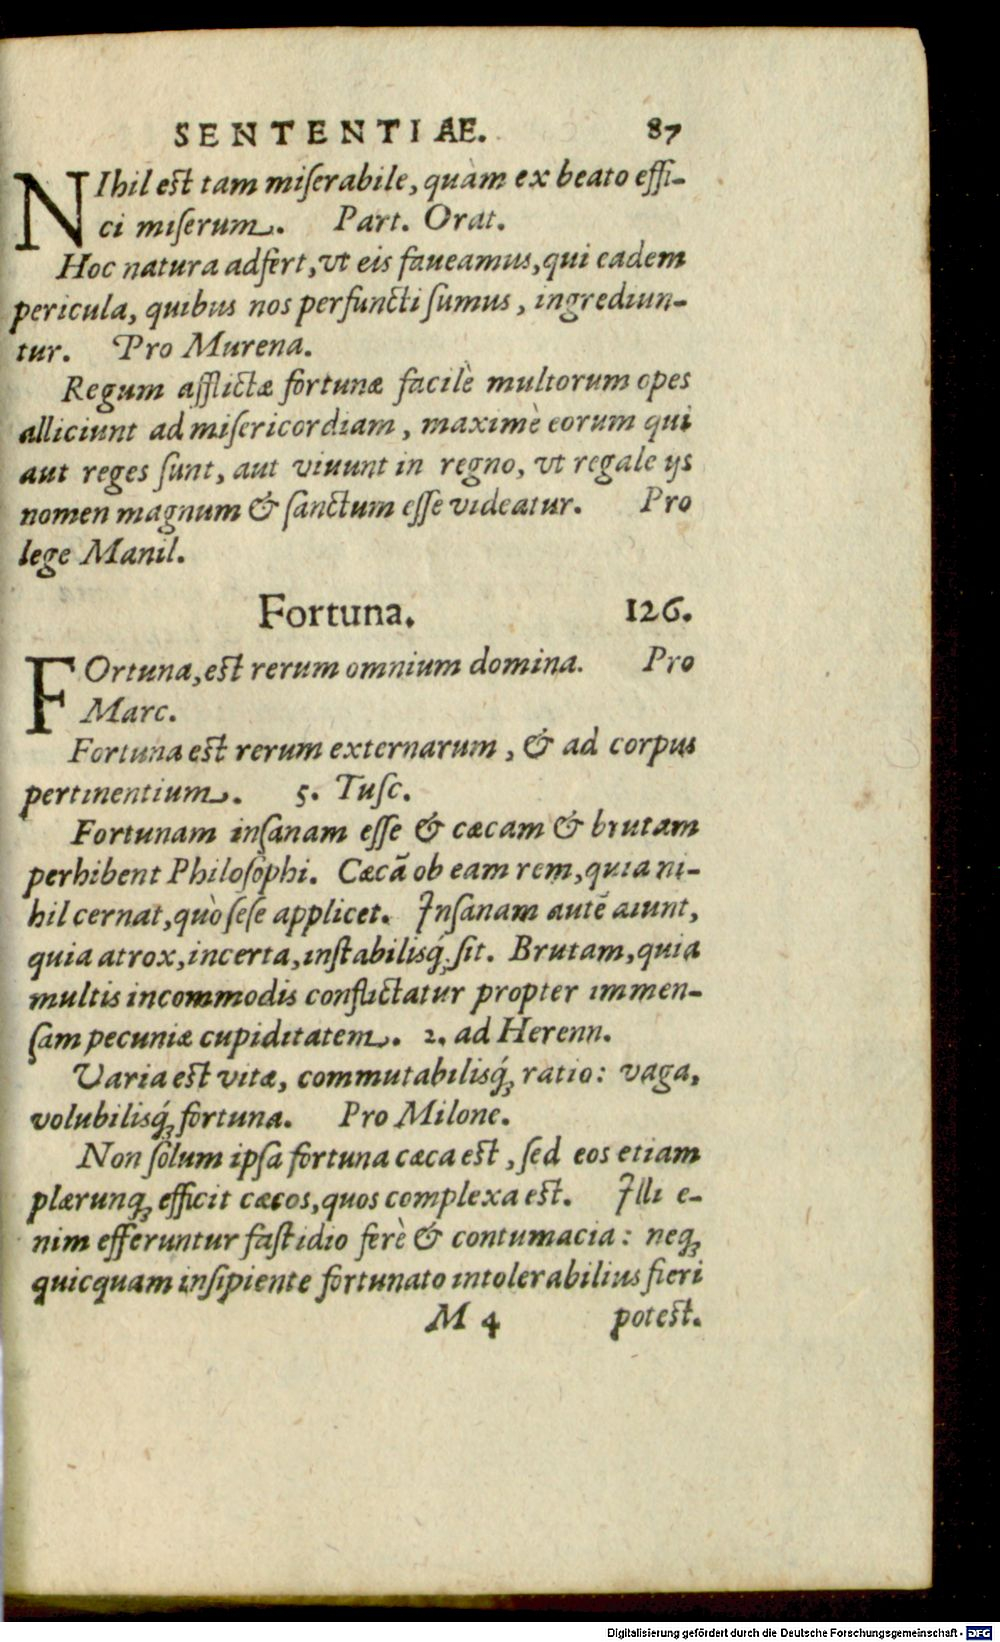 SENTENTIAE. 87
NIhil est tam miſerabile, quàm ex beato effi-
ci miſerum. Part. Orat.
Hoc natura adfert, vt eis faueamus, qui eadem
pericula, quibus nos perfuncti ſumus, ingrediun-
tur. Pro Murena.
Regum afflictæ fortunæ facilè multorum opes
alliciunt ad miſericordiam, maximè eorum qui
aut reges ſunt, aut viuunt in regno, vt regale ijs
nomen magnum & ſanctum eſſe videatur. Pro
lege Manil.
Fortuna. 126.
FOrtuna, est rerum omnium domina. Pro
Marc.
Fortuna est rerum externarum, & ad corpus
pertinentium. 5. Tuſc.
Fortunam inſanam eſſe & cæcam & brutam
perhibent Philoſophi. Cæcã ob eam rem, quia ni-
hil cernat, quò ſeſe applicet. Inſanam autẽ aiunt,
quia atrox, incerta, instabilisq́; ſit. Brutam, quia
multis incommodis conflictatur propter immen-
ſam pecuniæ cupiditatem. 2. ad Herenn.
Varia est vitæ, commutabilisq́; ratio: vaga,
volubilisq́; fortuna. Pro Milone.
Non ſolùm ipſa fortuna cæca est, ſed eos etiam
plærunq; efficit cæcos, quos complexa est. Illi e-
nim efferuntur faſtidio ferè & contumacia: neq;
quicquam inſipiente fortunato intolerabilius fieri
M 4 potest.
Digitalisierung gefördert durch die Deutsche Forschungsgemeinschaft - DFG